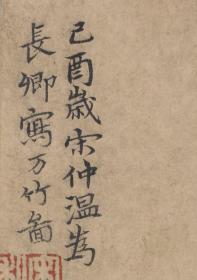 己酉歲宋仲温爲
長卿寫万竹啚